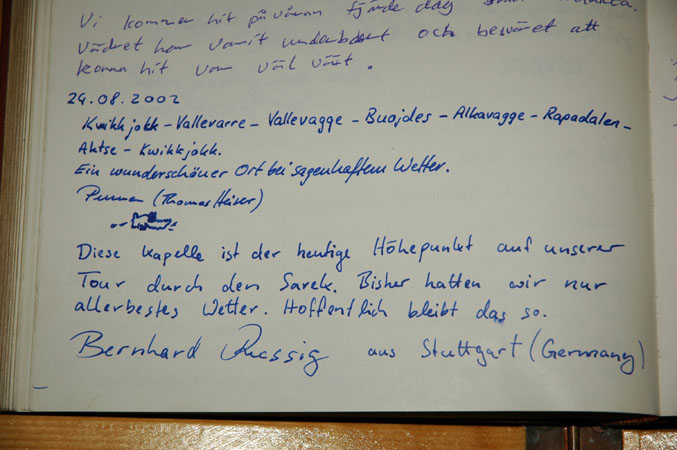 Vi kommer hit på våran fjärde dag
Vädret har varit underbart och besväret att
komma hit var väl värt.
29.08.2002
Kwikkjokk - Vallevarre - Vallevagge - Buojdes - Alkavagge - Rapadalen -
Aktse - Kwikkjokk.
Ein wunderschöner Ort bei sagenhaftem Wetter.
(Thomas Heiser)
Diese Kapelle ist der heutige Höhepunkt auf unserer
Tour durch den Sarek. Bisher hatten wir nur
allerbestes Wetter. Hoffentlich bleibt das so.
Bernhard Russig aus Stuttgart (Germany)